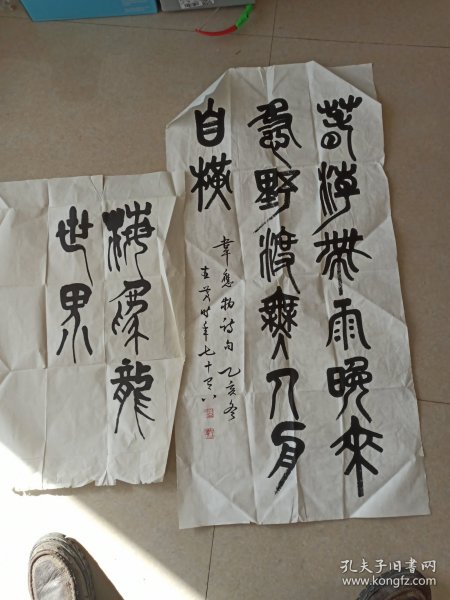 春潮帶雨晚來
急野渡無人舟
自橫
韋應物詩句 乙亥冬
茂时年七十又八
龍
世界
孔夫子旧书网
www.kongfz.com